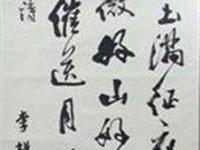 土滿征
微好山好
催送月
李